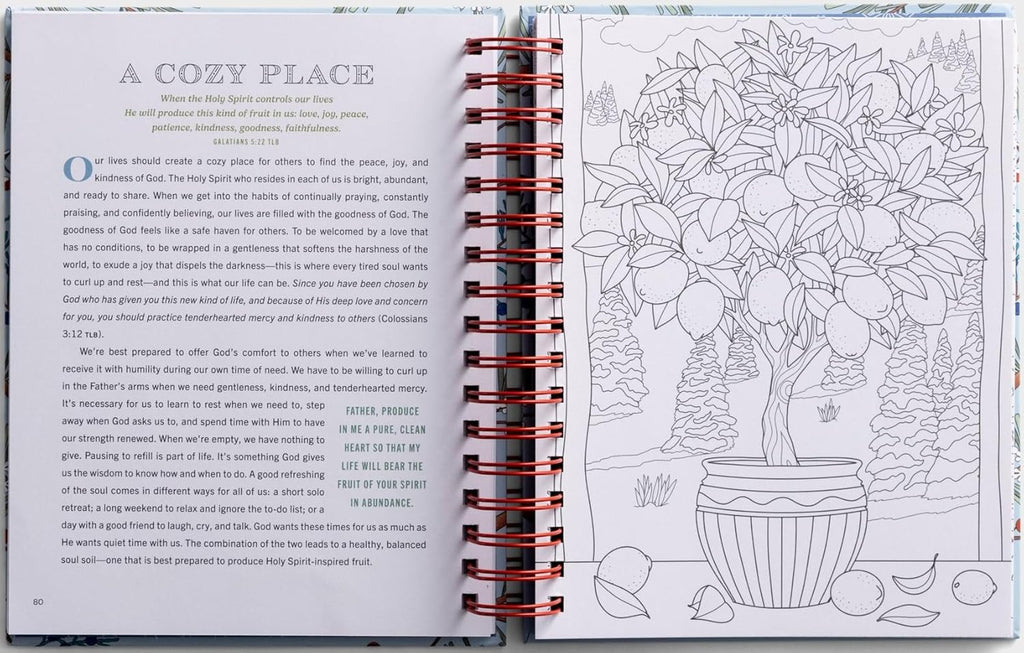 A COZY PLACE
When the Holy Spirit controls our lives
He will produce this kind of fruit in us: love, joy, peace,
patience, kindness, goodness, faithfulness.
GALATIANS 5:22 TLB
Our lives should create a cozy place for others to find the peace, joy, and
kindness of God. The Holy Spirit who resides in each of us is bright, abundant,
and ready to share. When we get into the habits of continually praying, constantly
praising, and confidently believing, our lives are filled with the goodness of God. The
goodness of God feels like a safe haven for others. To be welcomed by a love that
has no conditions, to be wrapped in a gentleness that softens the harshness of the
world, to exude a joy that dispels the darkness—this is where every tired soul wants
to curl up and rest—and this is what our life can be. Since you have been chosen by
God who has given you this new kind of life, and because of His deep love and concern
for you, you should practice tenderhearted mercy and kindness to others (Colossians
3:12 TLB).
We're best prepared to offer God's comfort to others when we've learned to
receive it with humility during our own time of need. We have to be willing to curl up
in the Father's arms when we need gentleness, kindness, and tenderhearted mercy.
It's necessary for us to learn to rest when we need to, step
away when God asks us to, and spend time with Him to have
our strength renewed. When we're empty, we have nothing to
give. Pausing to refill is part of life. It's something God gives
us the wisdom to know how and when to do. A good refreshing
of the soul comes in different ways for all of us: a short solo
retreat; a long weekend to relax and ignore the to-do list; or a
day with a good friend to laugh, cry, and talk. God wants these times for us as much as
He wants quiet time with us. The combination of the two leads to a healthy, balanced
soul soil—one that is best prepared to produce Holy Spirit-inspired fruit.
FATHER, PRODUCE
IN ME A PURE, CLEAN
HEART SO THAT MY
LIFE WILL BEAR THE
FRUIT OF YOUR SPIRIT
IN ABUNDANCE.
80